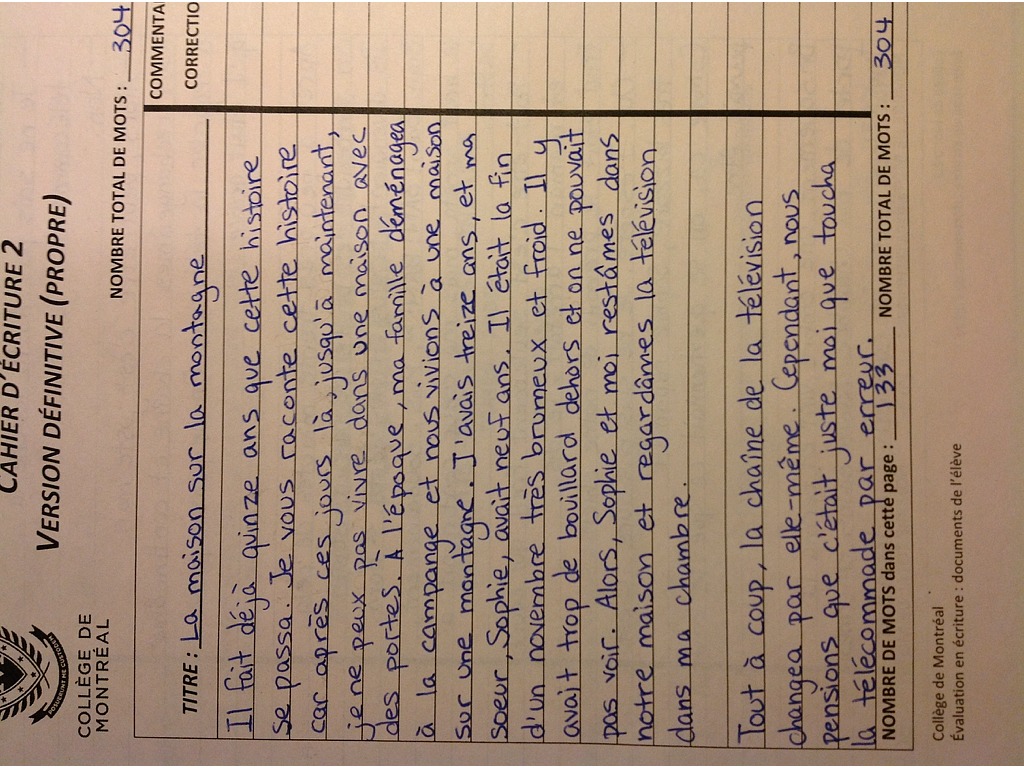 CAHIER D'ÉCRITURE 2
VERSION DÉFINITIVE (PROPRE)
COLLÈGE DE
MONTRÉAL
NOMBRE TOTAL DE MOTS : 304
TITRE : La maison sur la montagne
COMMENTA
CORRECTIO
Il fait déjà quinze ans que cette histoire
se passa. Je vous raconte cette histoire
car après ces jours là, jusqu'à maintenant,
je ne peux pas vivre dans une maison avec
des portes. À l'époque, ma famille déménagea
à la campange et nous vivions à une maison
sur une montagne. J'avais treize ans, et ma
soeur, Sophie, avait neuf ans. Il était la fin
d'un novembre très brumeux et froid. Il y
avait trop de bouillard dehors et on ne pouvait
pas voir. Alors, Sophie et moi restâmes dans
notre maison et regardâmes la télévision
dans ma chambre.
Tout à coup, la chaîne de la télévision
changea par elle-même. Cependant, nous
pensions que c'était juste moi que toucha
la télécommade par erreur.
NOMBRE DE MOTS dans cette page : 133 NOMBRE TOTAL DE MOTS : 304
Collège de Montréal
Évaluation en écriture : documents de l'élève